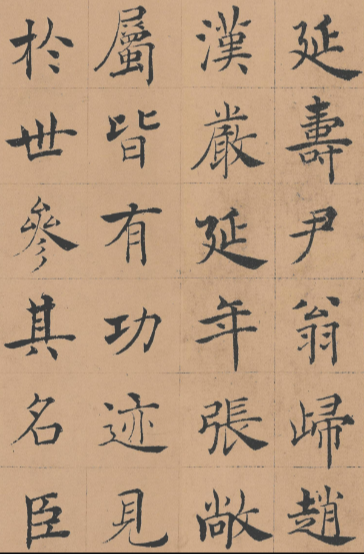 延壽尹翁歸趙
漢嚴延年張敞
屬皆有功迹見
於世參其名臣